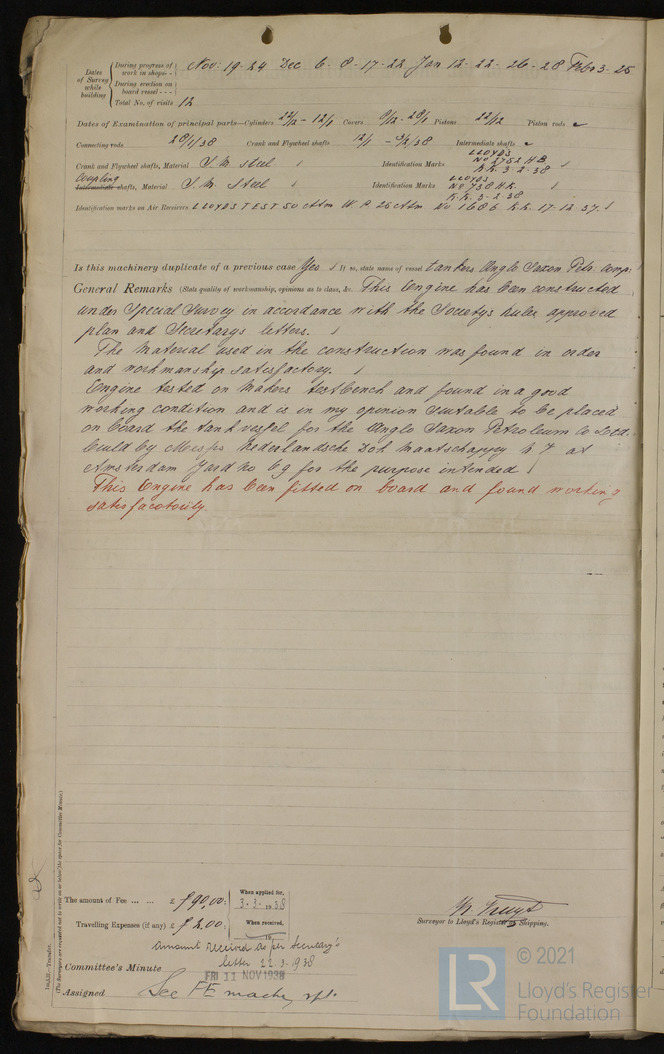 Dates of Survey while building
During progress of work in shops - - Nov: 19-24 Dec 6-8-17-22 Jan 12-22-26-28 Feb 3-25
During erection on board vessel - - -
Total No. of visits 12
Dates of Examination of principal parts—Cylinders 22/12 - 12/1 Covers 9/12 - 20/1 Pistons 22/12 Piston rods
Connecting rods 28/1/38 Crank and Flywheel shafts 12/1 - 3/2/38 Intermediate shafts
Crank and Flywheel shafts, Material S.M. steel Identification Marks LLOYDS No 2762 H B K.K. 3-2-38
Coupling
Intermediate shafts, Material S.M. Steel Identification Marks LLOYDS No 738 H.K. K.K. 3-2-38
Identification marks on Air Receivers LLOYDS TEST 50 Atm W.P. 25 Atm No 1686 K.K. 17-12-37.
Is this machinery duplicate of a previous case Yes If so, state name of vessel tankers Anglo Saxon Petr. Comp:
General Remarks (State quality of workmanship, opinions as to class, &c. This Engine has been constructed
under Special Survey in accordance with the Society's rules approved
plan and Secretarys letters.
The material used in the construction was found in order
and workmanship satisfactory.
Engine tested on makers testbench and found in a good
working condition and is in my opinion suitable to be placed
on board the tank vessel for the Anglo Saxon Petroleum Co Ltd.
build by Messrs Nederlandsche Dok Maatschappy at
Amsterdam Yard No 69 for the purpose intended
This Engine has been fitted on board and found working
satisfactorily.
The amount of Fee ... ... £ f 90,00:
When applied for,
3-3-1938
Travelling Expenses (if any) £ f 2,00:
When received,
19
Amount received as per Secretary's
letter 22.3.1938
Surveyor to Lloyd's Register of Shipping.
Committee's Minute FRI 11 NOV 1938
Assigned See FE machy rpt.
1m,8,36.—Transfer.
(The Surveyors are requested not to write on or below the space for Committee Minute.)
LR
© 2021
Lloyd's Register
Foundation